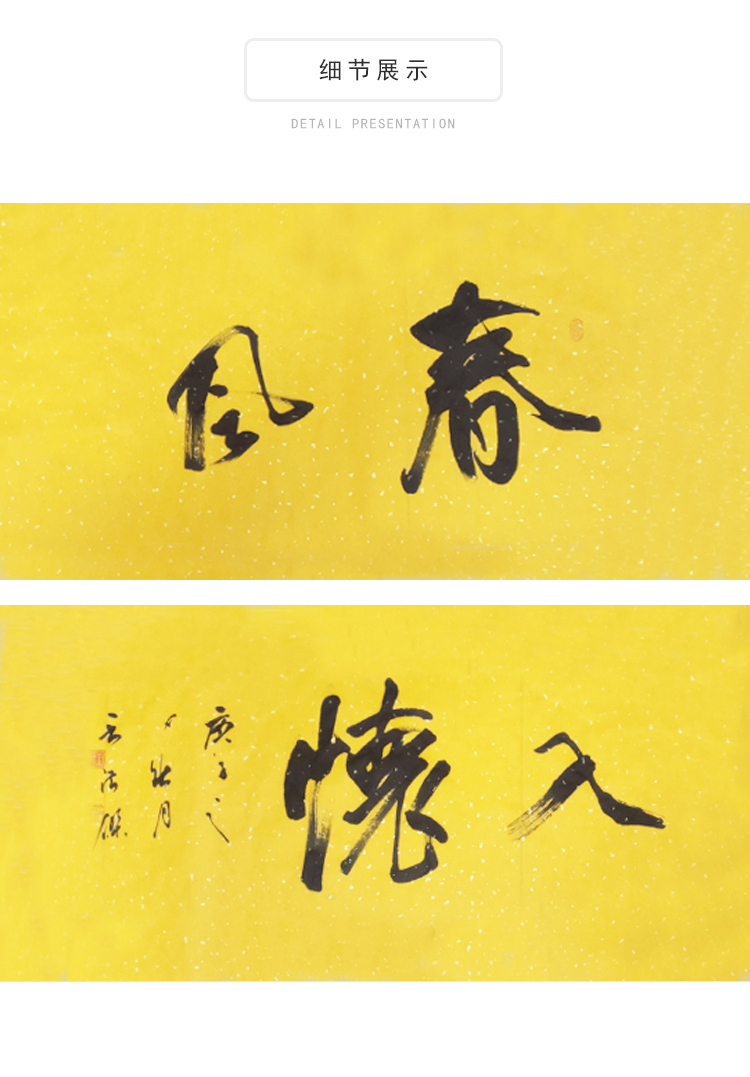 细节展示
DETAIL PRESENTATION
春风
入懷
庚子之
月